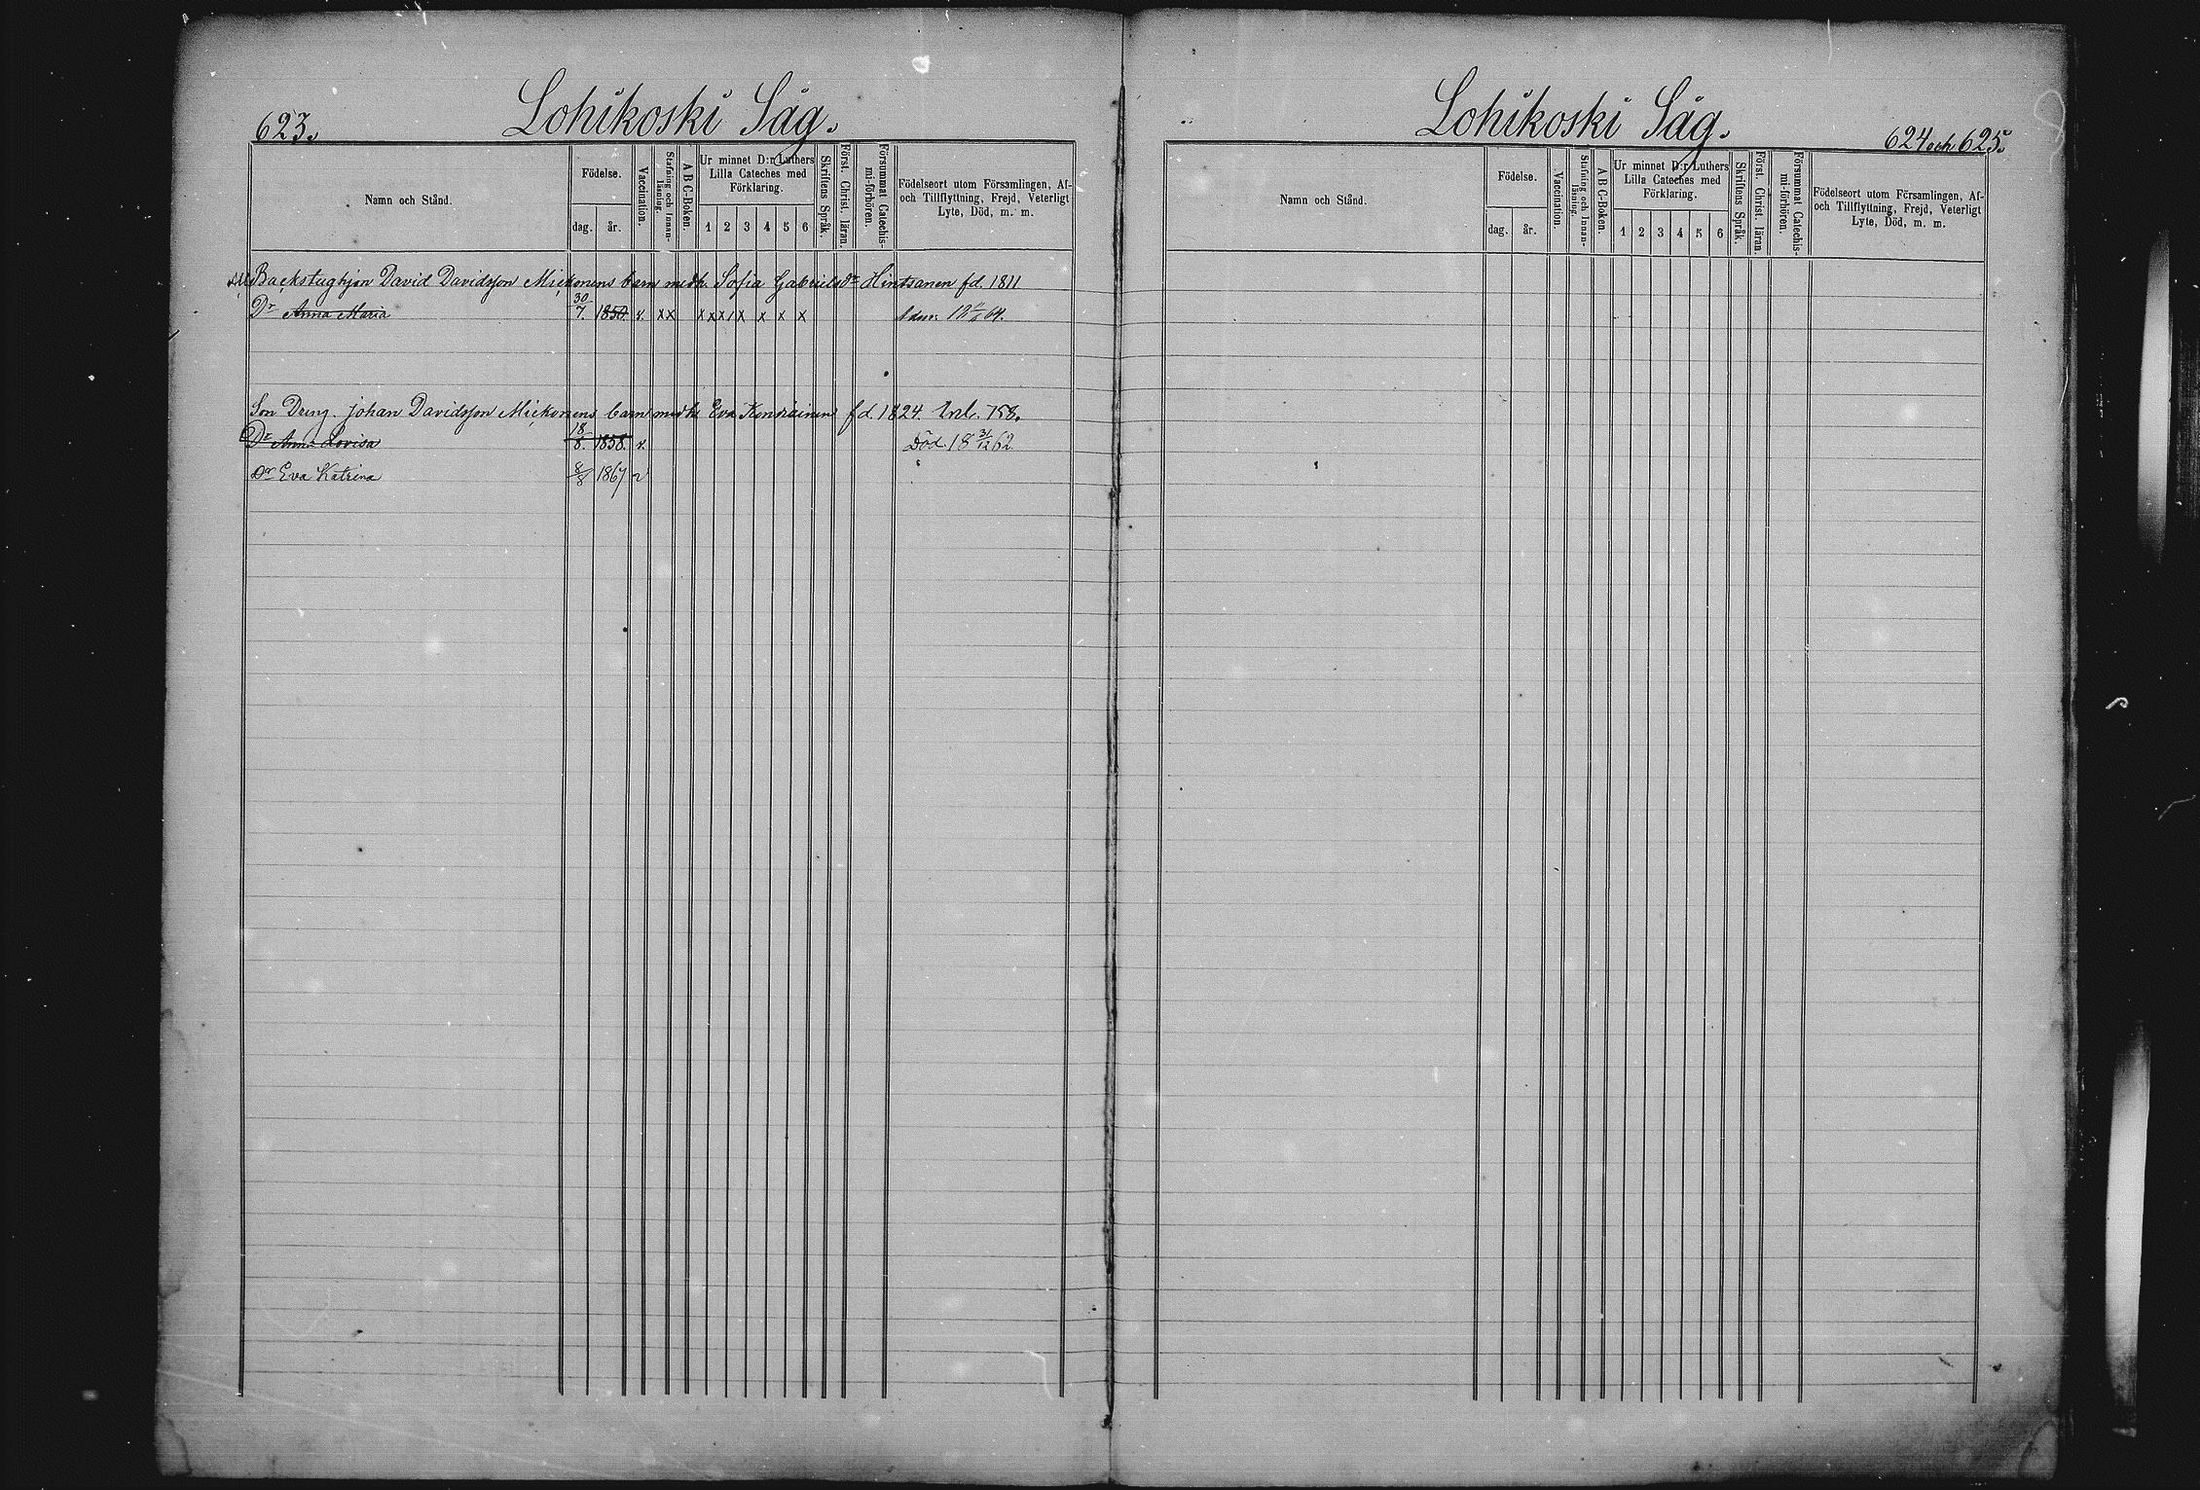 623.
Lohikoski Såg.
Namn och Stånd.
Födelse.
dag.
år.
Vaccination.
Stafning och Innan-läsning.
A B C-Boken.
Ur minnet D:r Luthers Lilla Cateches med Förklaring.
1 2 3 4 5 6
Skriftens Språk.
Först. Christ. läran.
Försummat Catechis-mi-förhören.
Födelseort utom Församlingen, Af- och Tillflyttning, Frejd, Veterligt Lyte, Död, m. m.
Backstughjon David Davidsson Mickonens barn medh. Sofia Gabrielsdr Hintsanen fd. 1811
Dr Anna Maria 30/7. 1850. v. x x x x x 1 x x x x 64.
Son Dreng. Johan Davidsson Mickonens barn medh Eva fd. 1824. 758.
Dr Anna Lovisa 18/8. 1858. v. Död. 18 31/12 62
Dr Eva Katrina 8/8 1867 v
Lohikoski Såg.
624 och 625.
Namn och Stånd.
Födelse.
dag.
år.
Vaccination.
Stafning och Innan-läsning.
A B C-Boken.
Ur minnet D:r Luthers Lilla Cateches med Förklaring.
1 2 3 4 5 6
Skriftens Språk.
Först. Christ. läran.
Försummat Catechis-mi-förhören.
Födelseort utom Församlingen, Af- och Tillflyttning, Frejd, Veterligt Lyte, Död, m. m.